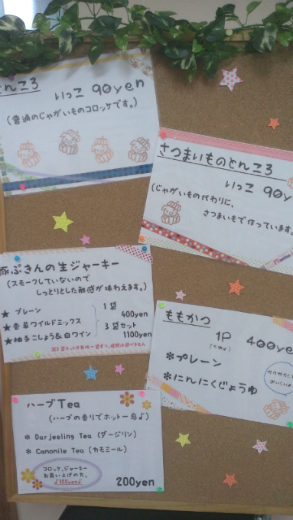 とんころ
いっこ 90yen
(普通のじゃがいものコロッケです。)
さつまいものとんころ
いっこ 90y
(じゃがいもの代わりに、
さつまいもで作っています。
豚ぶきんの生ジャーキー
(スモークしていないので
しっとりとした触感が味わえます。)
★ プレーン
★ 香草ワイルドミックス
★ 柚子こしょう&白ワイン
1袋
400yen
3袋セット
1100yen
ももかつ
1P 400ye
*プレーン
*にんにくじょうゆ
ハーブTea
(ハーブの香りでホットー息♪)
* Darjeeling Tea (ダージリン)
* Camomile Tea (カモミール)
コロッケ、ジャーキー
お買い上げの方、
200yen